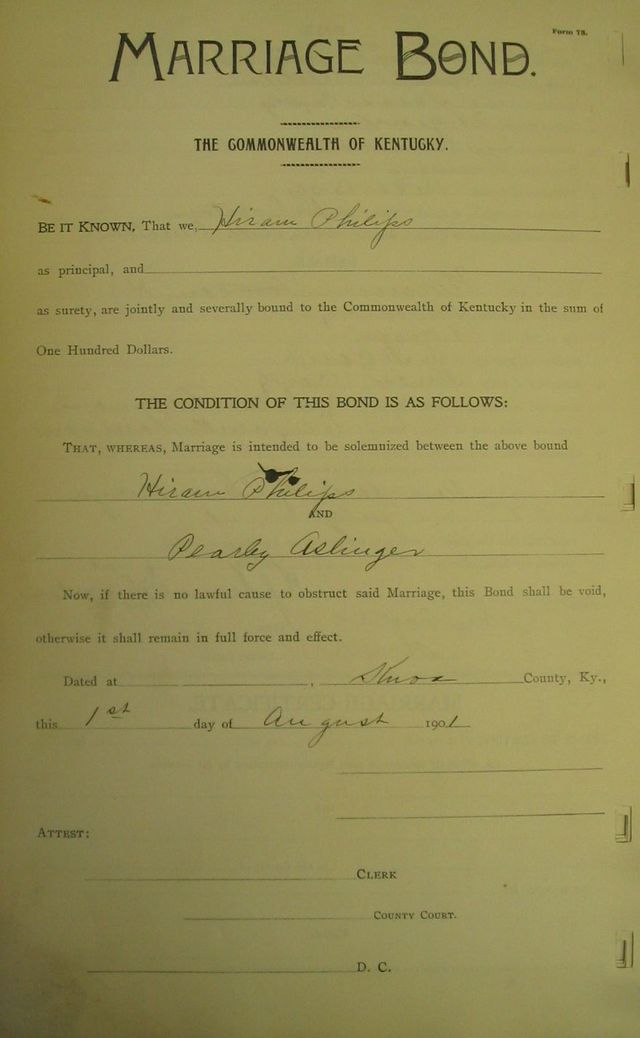 Form 73.
MARRIAGE BOND.
THE COMMONWEALTH OF KENTUCKY.
BE IT KNOWN, That we, Hiram Philips
as principal, and
as surety, are jointly and severally bound to the Commonwealth of Kentucky in the sum of
One Hundred Dollars.
THE CONDITION OF THIS BOND IS AS FOLLOWS:
THAT, WHEREAS, Marriage is intended to be solemnized between the above bound
Hiram Philips
AND
Pearly Aslinger
Now, if there is no lawful cause to obstruct said Marriage, this Bond shall be void,
otherwise it shall remain in full force and effect.
Dated at , Knox County, Ky.,
this 1st day of August 1901
ATTEST:
CLERK
COUNTY COURT.
D. C.